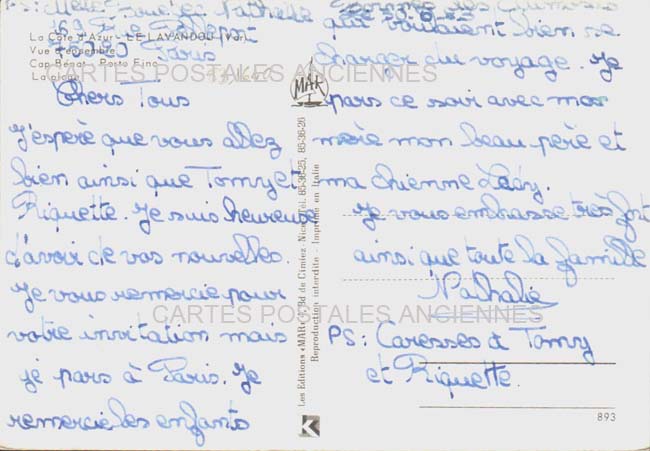 Melle Nathalie
La Côte d'Azur - LE LAVANDOU (Var)
Vue d'ensemble
Cap Bénat - Porto Fino
La plage
Paris
Chers Tous
J'espère que vous allez
bien ainsi que Tomy et
Riquette. Je suis heureuse
d'avoir de vos nouvelles.
Je vous remercie pour
votre invitation mais
je pars à Paris. Je
remercie les enfants
MAR
Les Editions «MAR», Bd de Cimiez, Nice, Tél. 85-36-25, 85-36-26
Reproduction interdite - Imprimé en Italie
K
qui voulaient bien se
charger du voyage. Je
pars ce soir avec ma
mère mon beau-père et
ma chienne
Je vous embrasse très fort
ainsi que toute la famille
Nathalie
PS: Caresses à Tomy
et Riquette.
893
CARTES POSTALES ANCIENNES
CARTES POSTALES ANCIENNES